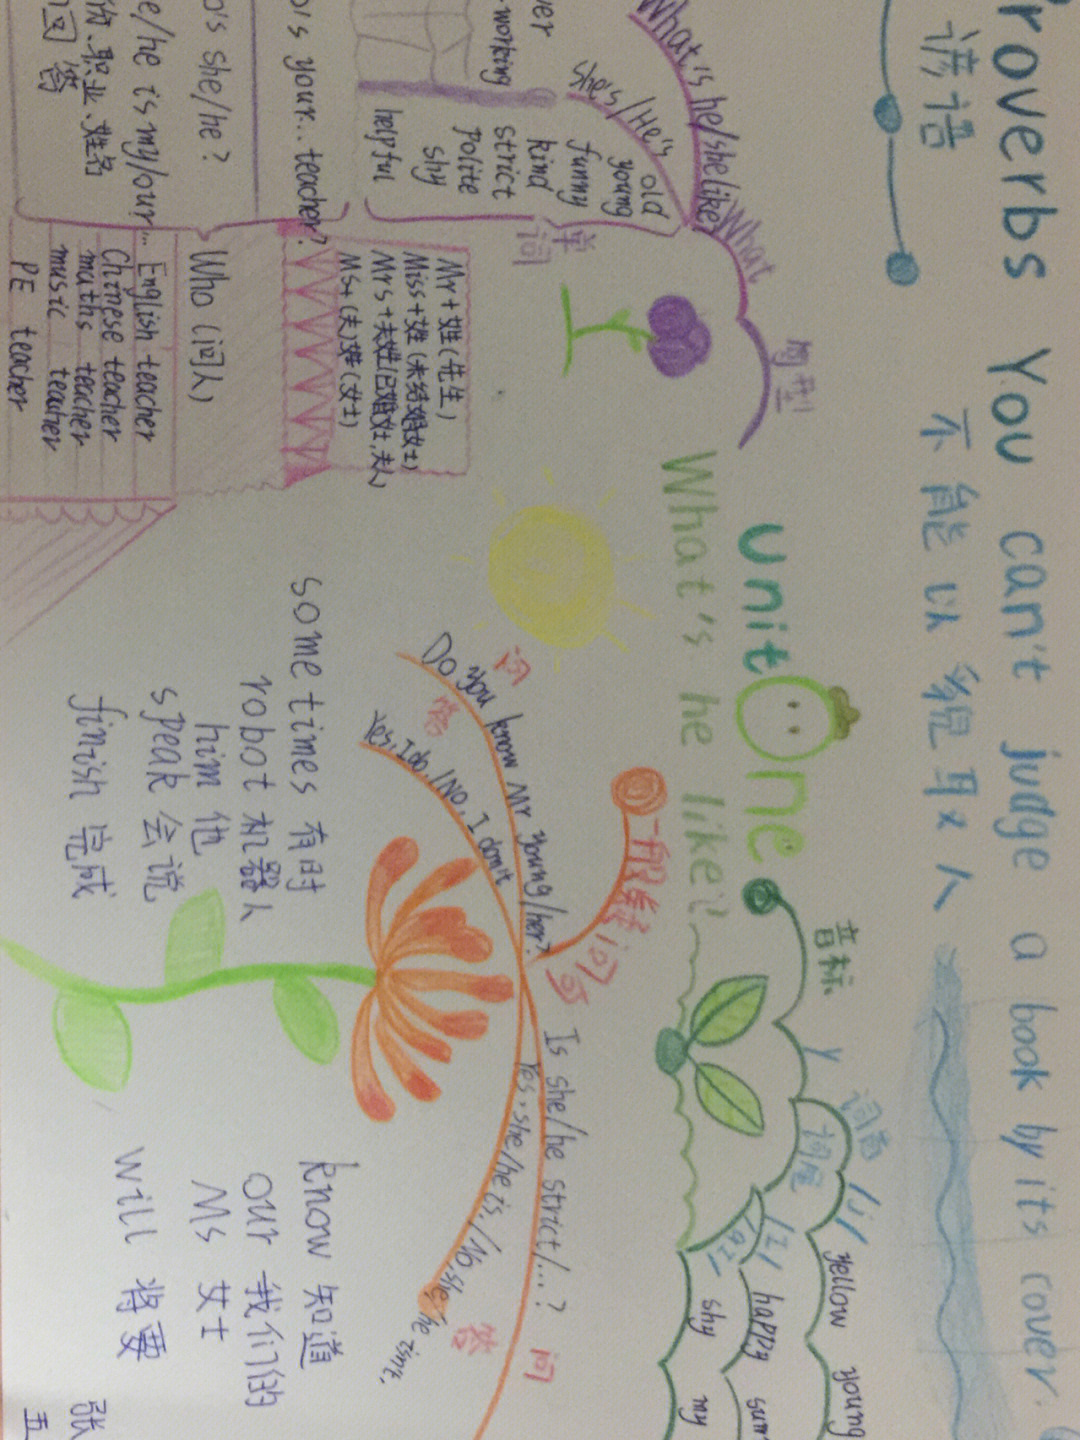 Proverbs You can't judge a book by its cover.
谚语 不能以貌取人
unit One
What's he like?
音标
y
词首
/j/
yellow young
词尾
/i/
happy
/ai/
shy my
句型
What
What is he/she like?
She's/He's
old
young
funny
kind
strict
polite
shy
helpful
单词
working
Mr+姓(先生)
Miss+姓(未结婚女士)
Mrs+夫姓(已婚女士,夫人)
Ms+(夫)姓(女士)
Who (问人)
is your...teacher?
she/he?
he is my/our...
职业、姓名
回答
English teacher
Chinese teacher
maths teacher
music teacher
PE teacher
一般疑问句
问
Do you know Mr young/her?
答
Yes, I do./No, I don't
Is she/he strict/...?
问
Yes, she/he is./No, she/he isn't.
答
sometimes 有时
robot 机器人
him 他
speak 会说
finish 完成
know 知道
our 我们的
Ms 女士
will 将要
张
五